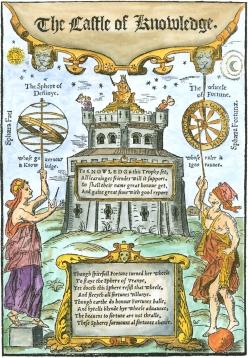 The Castle of Knowledge.
The Sphere of
Destinye.
The wheele
of Fortune.
Sphæra Fati
Sphæra Fortunæ
whose
Know ledge.
whose ruler is
Igno raunce.
To KNOWLEDGE is this Trophy set,
All learnings friendes will it support,
So shall their name great honour get,
And gaine great fame with good report
Though spitefull Fortune turned her wheele
To staye the Sphere of Vranye,
Yet dooth this Sphere resist that wheele,
And fleeyth all fortunes villanye.
Though earthe do honour Fortunes balle,
And bytells blynde hyr wheele aduaunce,
The heauens to fortune are not thralle,
These Spheres surmount al fortunes chance.